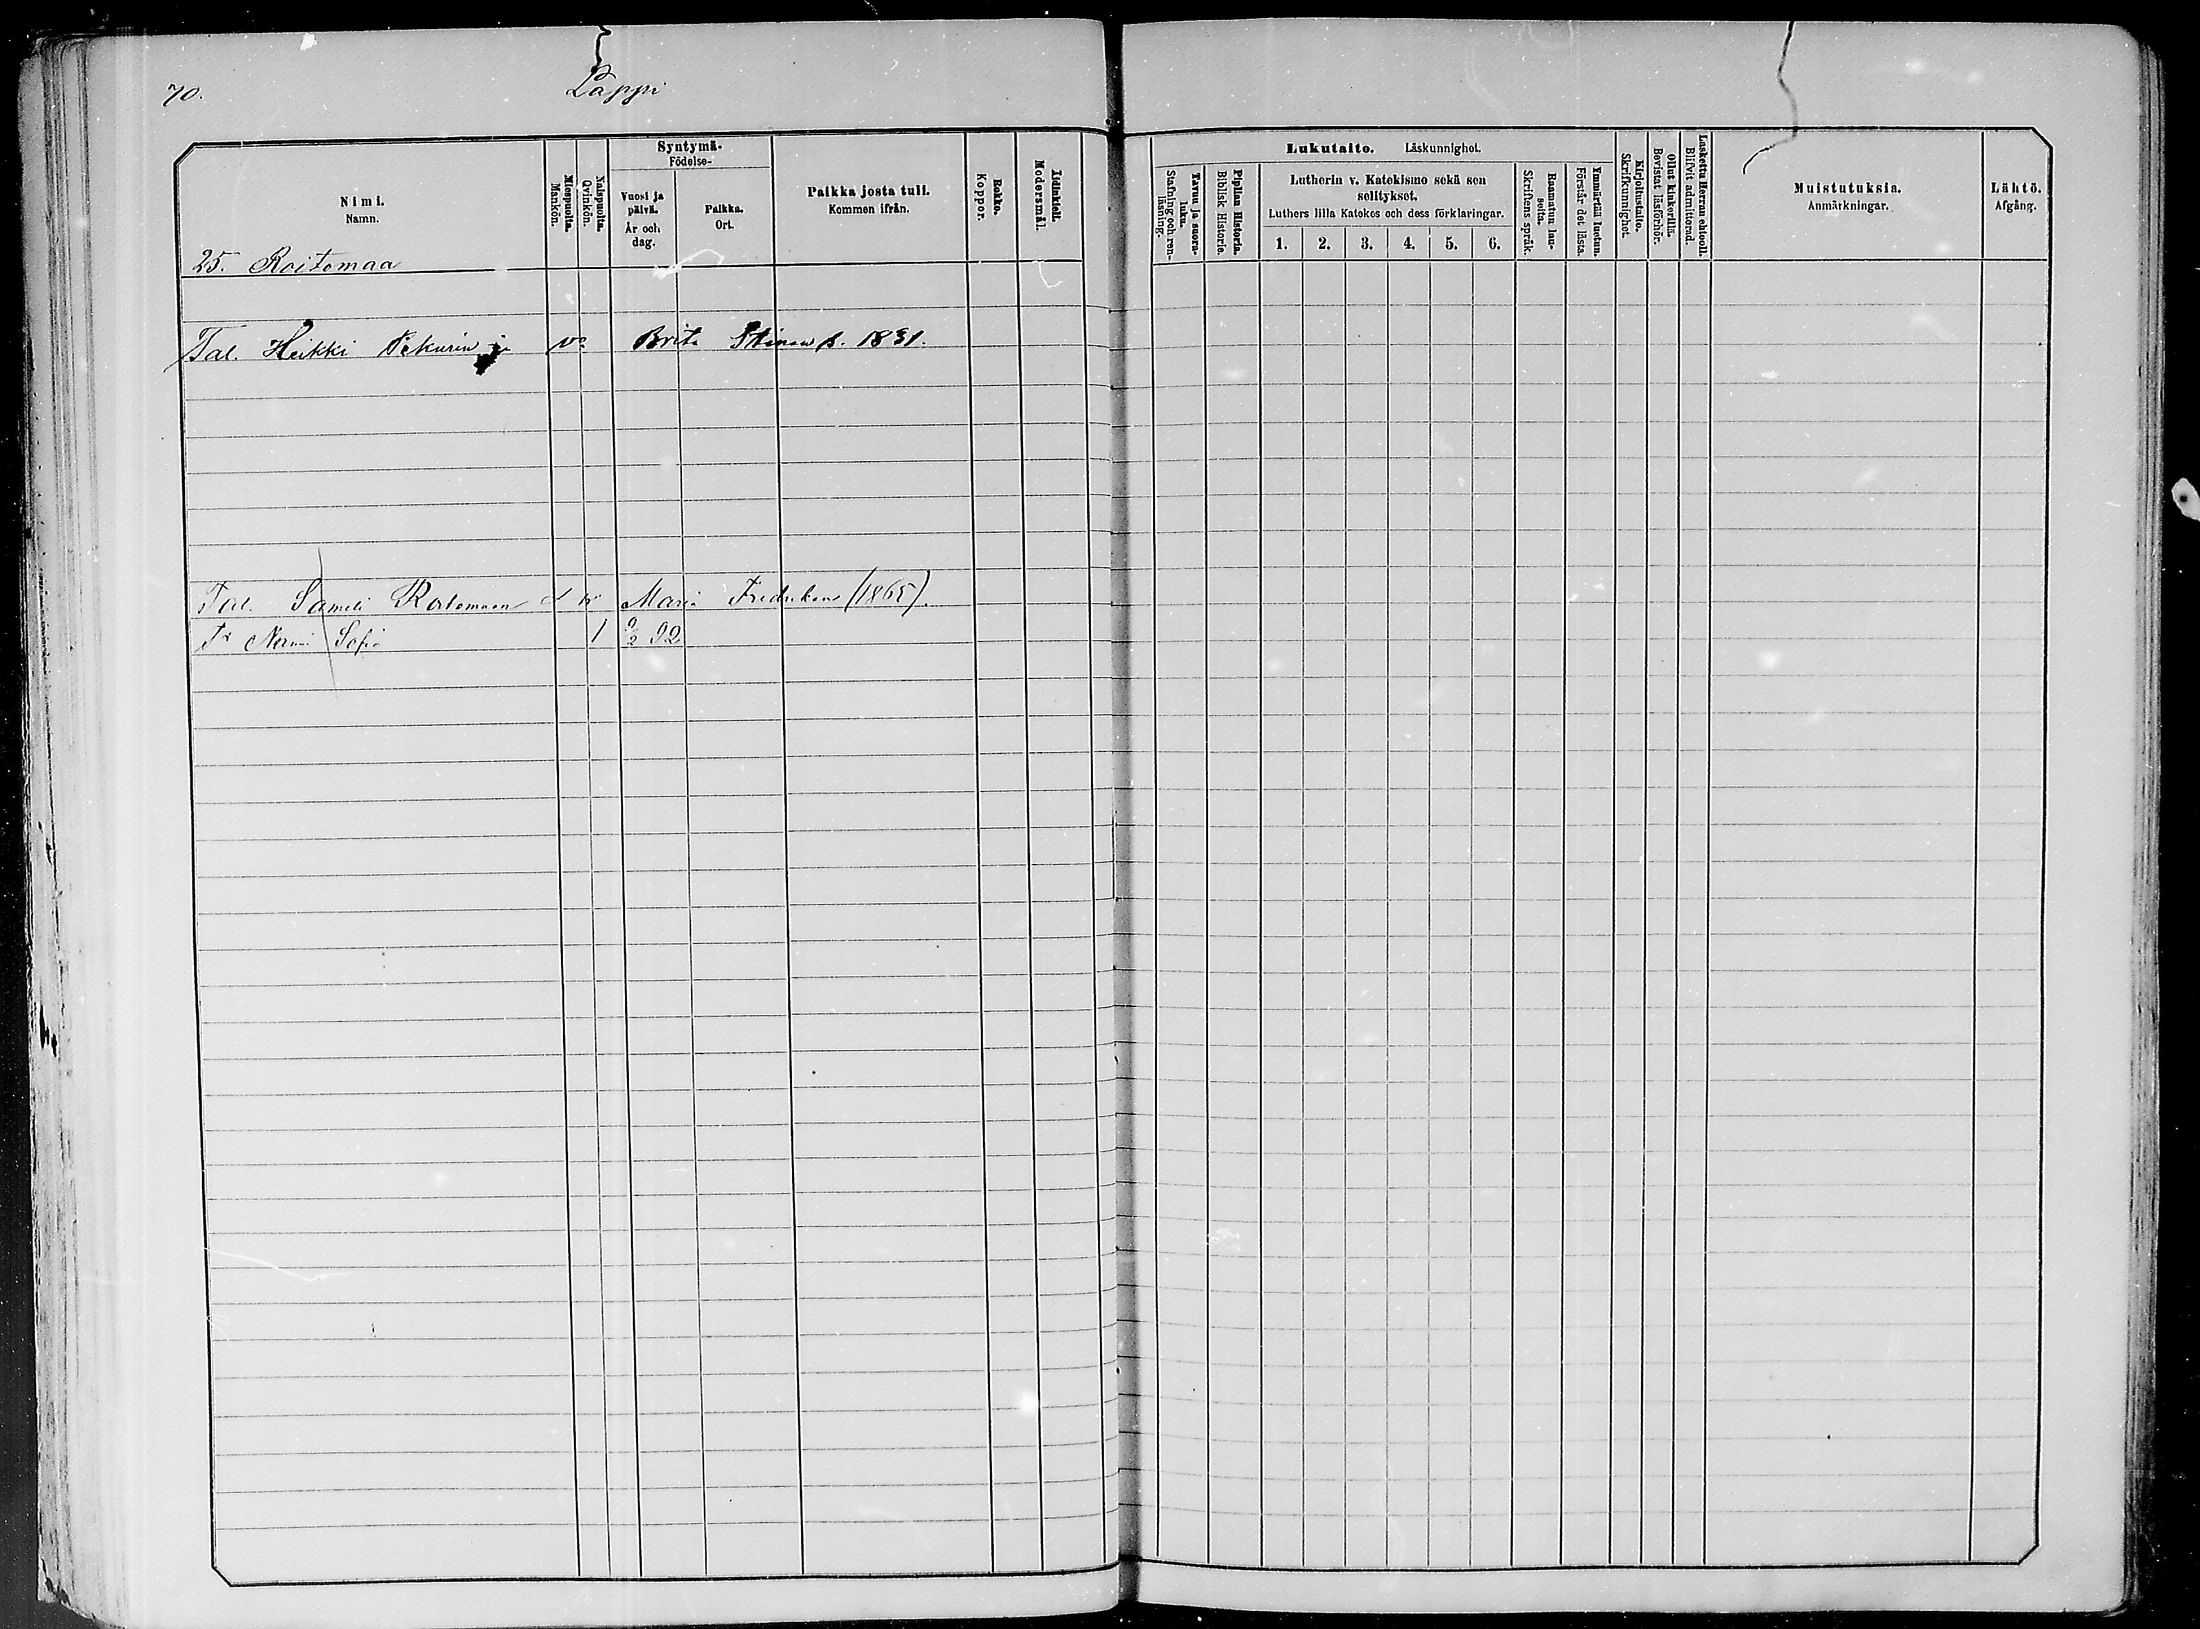 70.
Lappi
Nimi.
Namn.
Miespuolta.
Mankön.
Naispuolta.
Qvinkön.
Syntymä-
Födelse-
Vuosi ja päivä.
År och dag.
Paikka.
Ort.
Paikka josta tuli.
Kommen ifrån.
Rokko.
Koppor.
Äidinkieli.
Modersmål.
Lukutaito. Läskunnighet.
Tavuu ja suora-luku.
Stafning och ren-läsning.
Piplian Historia.
Biblisk Historie.
Lutherin v. Katekismo sekä sen
selitykset.
Luthers lilla Katekes och dess förklaringar.
1. 2. 3. 4. 5. 6.
Raamatun lau-seita.
Skriftens språk.
Ymmärtää luetun.
Förstår det lästa.
Kirjoitustaito.
Skrifkunnighet.
Ollut kinkerillä.
Bevistat läsförhör.
Laskettu Herran ehtoolle.
Blifvit admitterad.
Muistutuksia.
Anmärkningar.
Lähtö.
Afgång.
25. Roitomaa
Tal. Heikki Pekurin ja vo Brita Stinan s. 1831.
Tal. Sameli Roitomaan Maria Fredrikan (1865).
Tr Nanni Sofia 1 9/2 92